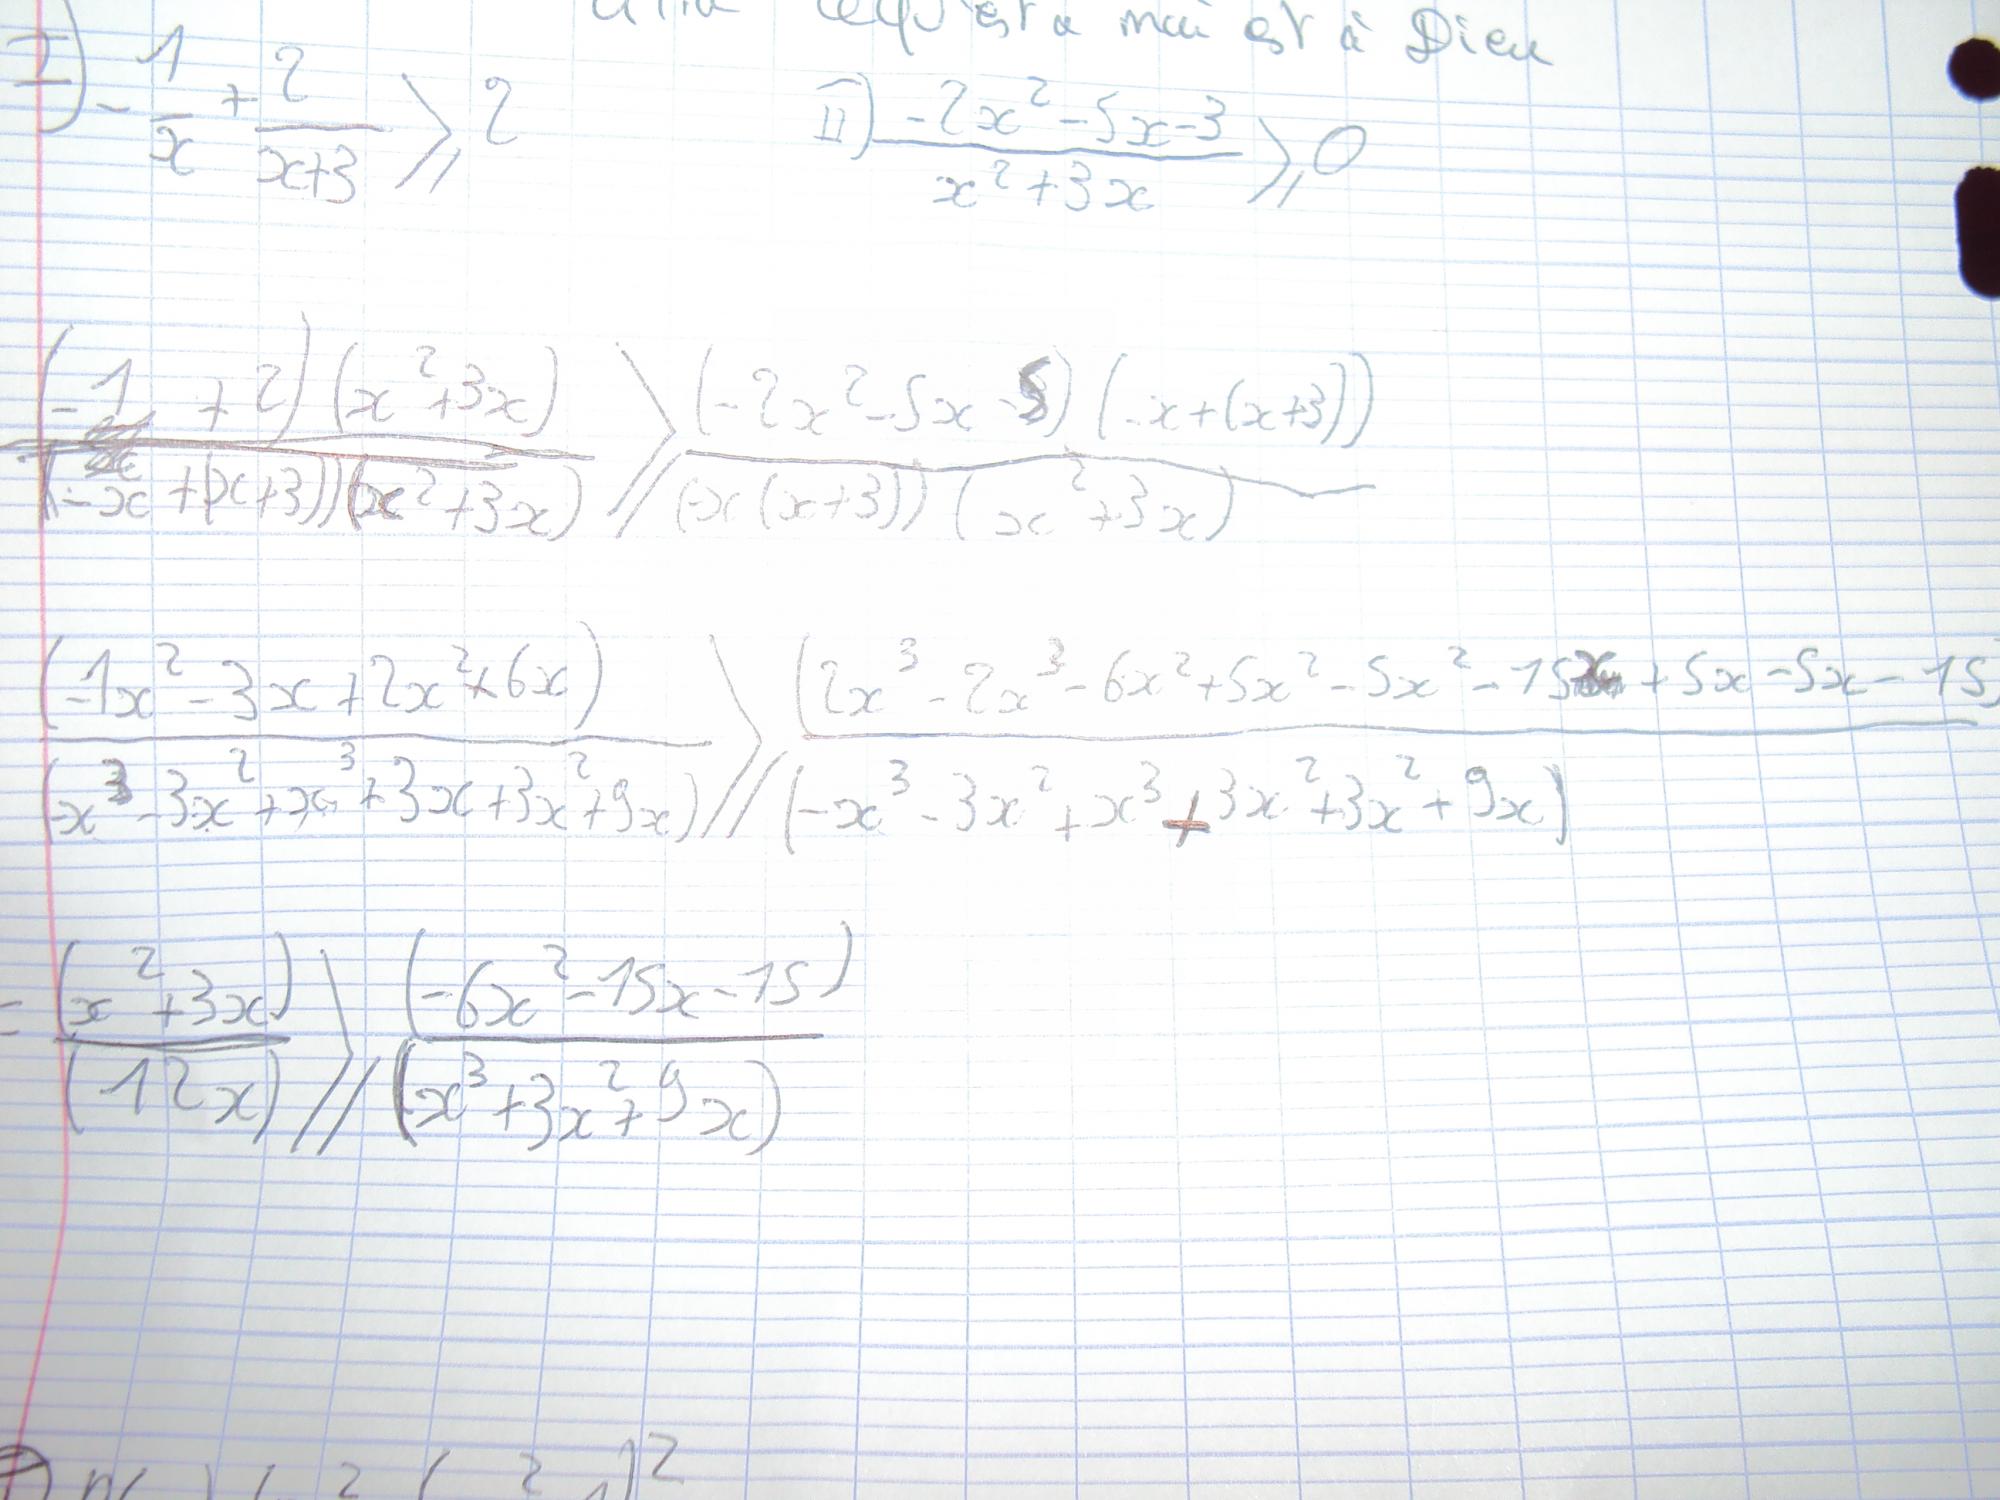 est à moi est à Dieu
I) -1/x + 2/(x+3) ⩾ 2 II) (-2x² -5x-3)/(x²+3x) ⩾ 0
(-1 + 2)(x²+3x)/((-x+(x+3))(x²+3x)) ⩾ (-2x²-5x-5)(-x+(x+3))/((-x(x+3))(x²+3x))
(-1x²-3x+2x²+6x)/(-x³-3x²+x³+3x+3x²+9x) ⩾ (2x³-2x³-6x²+5x²-5x²-15x+5x-5x-15)/(-x³-3x²+x³+3x²+3x²+9x)
= (x²+3x)/(12x) ⩾ (-6x²-15x-15)/(x³+3x²+9x)